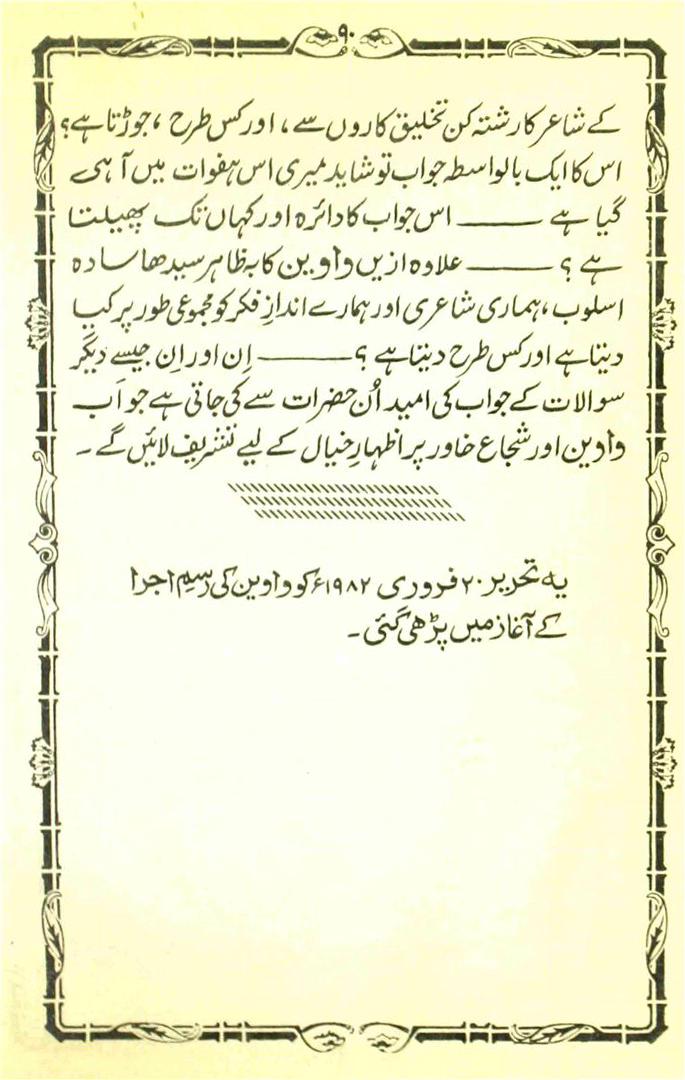 ۹۰
کے شاعر کا رشتہ کن تخلیق کاروں سے، اور کس طرح، جوڑتا ہے؟
اس کا ایک بالواسطہ جواب تو شاید میری اس ہفوات میں آ ہی
گیا ہے ——— اس جواب کا دائرہ اور کہاں تک پھیلتا
ہے ؟ ——— علاوہ ازیں واوین کا بظاہر سیدھا سادہ
اسلوب، ہماری شاعری اور ہمارے اندازِ فکر کو مجموعی طور پر کیا
دیتا ہے اور کس طرح دیتا ہے ؟ ——— اِن اور اِن جیسے دیگر
سوالات کے جواب کی امید اُن حضرات سے کی جاتی ہے جو اَب
واوین اور شجاع خاور پر اظہارِ خیال کے لیے تشریف لائیں گے ۔
یہ تحریر ۲۰ فروری ۱۹۸۲ء کو واوین کی رسمِ اجرا
کے آغاز میں پڑھی گئی ۔